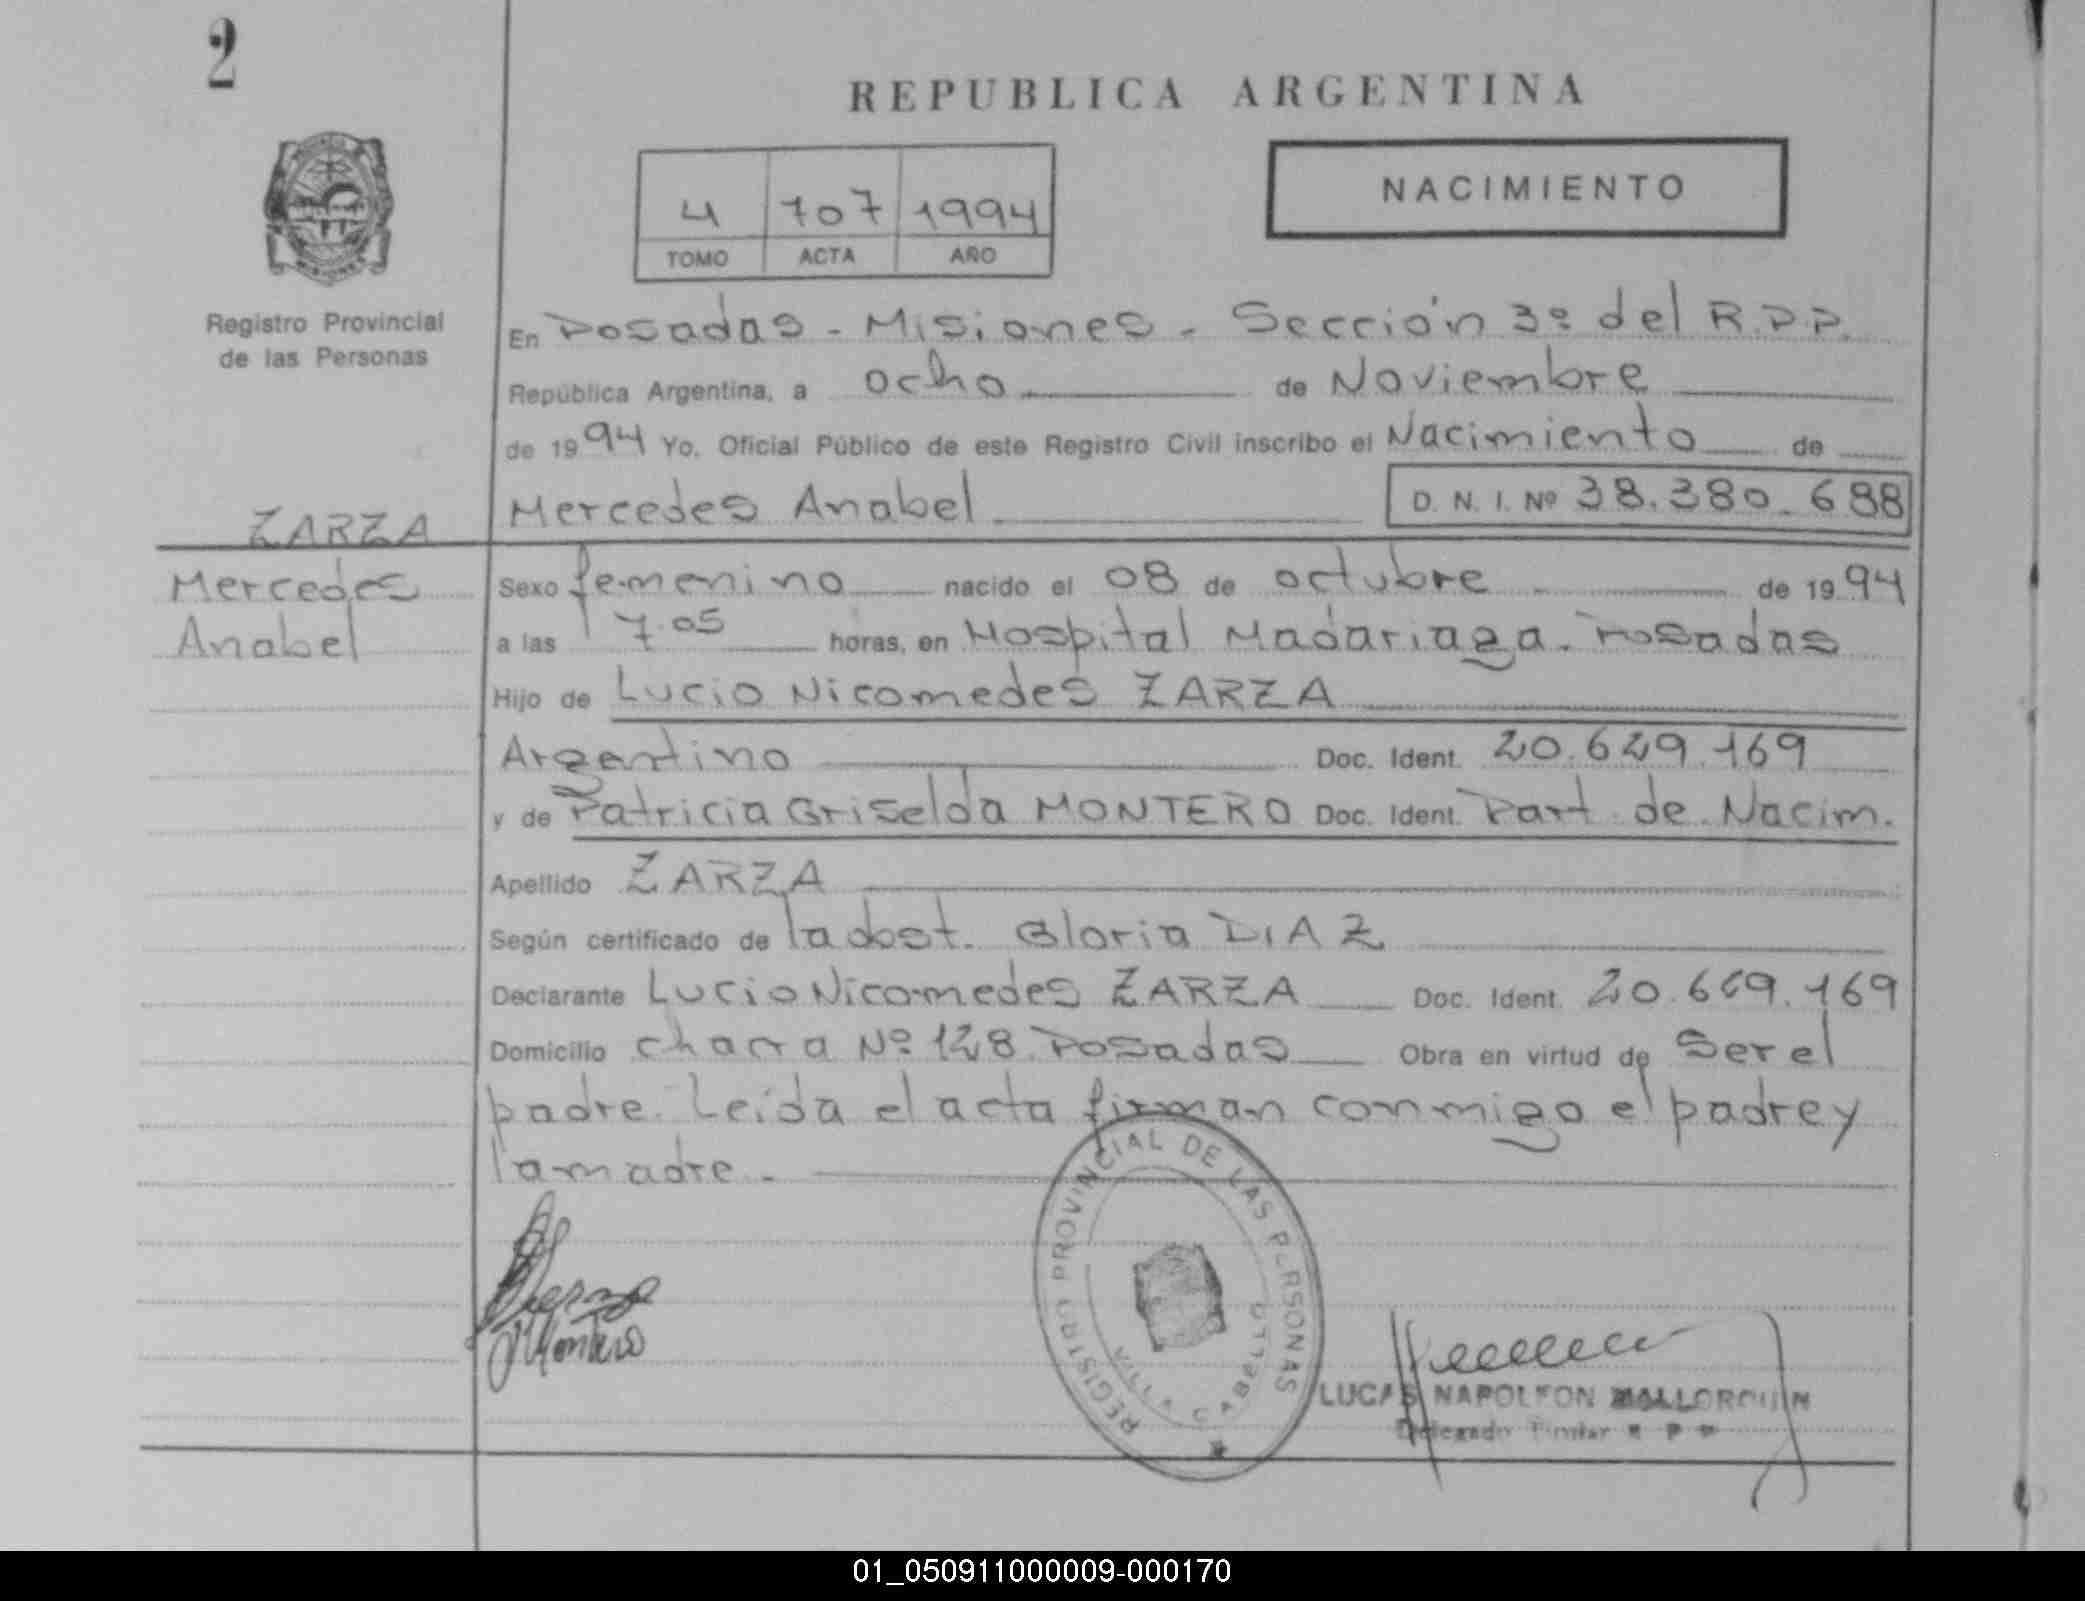 2
REPUBLICA ARGENTINA
NACIMIENTO
4 707 1994
TOMO ACTA AÑO
Registro Provincial
de las Personas
En Posadas - Misiones - Sección 3º del R.P.P.
República Argentina, a ocho de Noviembre
de 1994 Yo, Oficial Público de este Registro Civil inscribo el Nacimiento de
Mercedes Anabel D. N. I. Nº 38.380.688
ZARZA
Mercedes
Anabel
Sexo femenino nacido el 08 de octubre de 1994
a las 7.05 horas, en Hospital Madariaga. Posadas
Hijo de Lucio Nicomedes ZARZA
Argentino Doc. Ident. 20.629.169
y de Patricia Griselda MONTERO Doc. Ident. Part. de Nacim.
Apellido ZARZA
Según certificado de la obst. Gloria DIAZ
Declarante Lucio Nicomedes ZARZA Doc. Ident. 20.629.169
Domicilio chacra Nº 128 Posadas Obra en virtud de Ser el
padre. Leída el acta firman conmigo el padre y
la madre.-
Montero
REGISTRO PROVINCIAL DE LAS PERSONAS
VILLA CABELLO
LUCAS NAPOLEON MALLORQUIN
Delegado Titular R P P
01_050911000009-000170